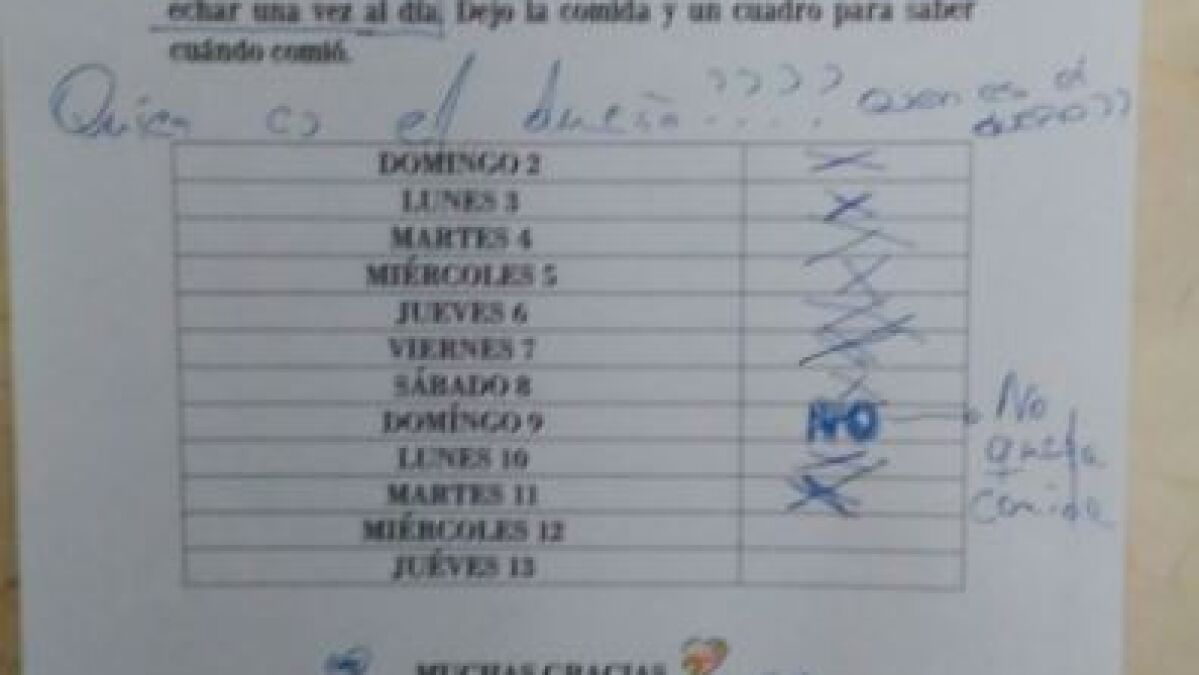 echar una vez al día. Dejo la comida y un cuadro para saber
cuándo comió.
Quien es el dueño????
DOMINGO 2 X
LUNES 3 X
MARTES 4 X
MIÉRCOLES 5 X
JUEVES 6 X
VIERNES 7 X
SÁBADO 8 X
DOMÍNGO 9 NO
No
queda
comida
LUNES 10 X
MARTES 11 X
MIÉRCOLES 12
JUÉVES 13
MUCHAS GRACIAS